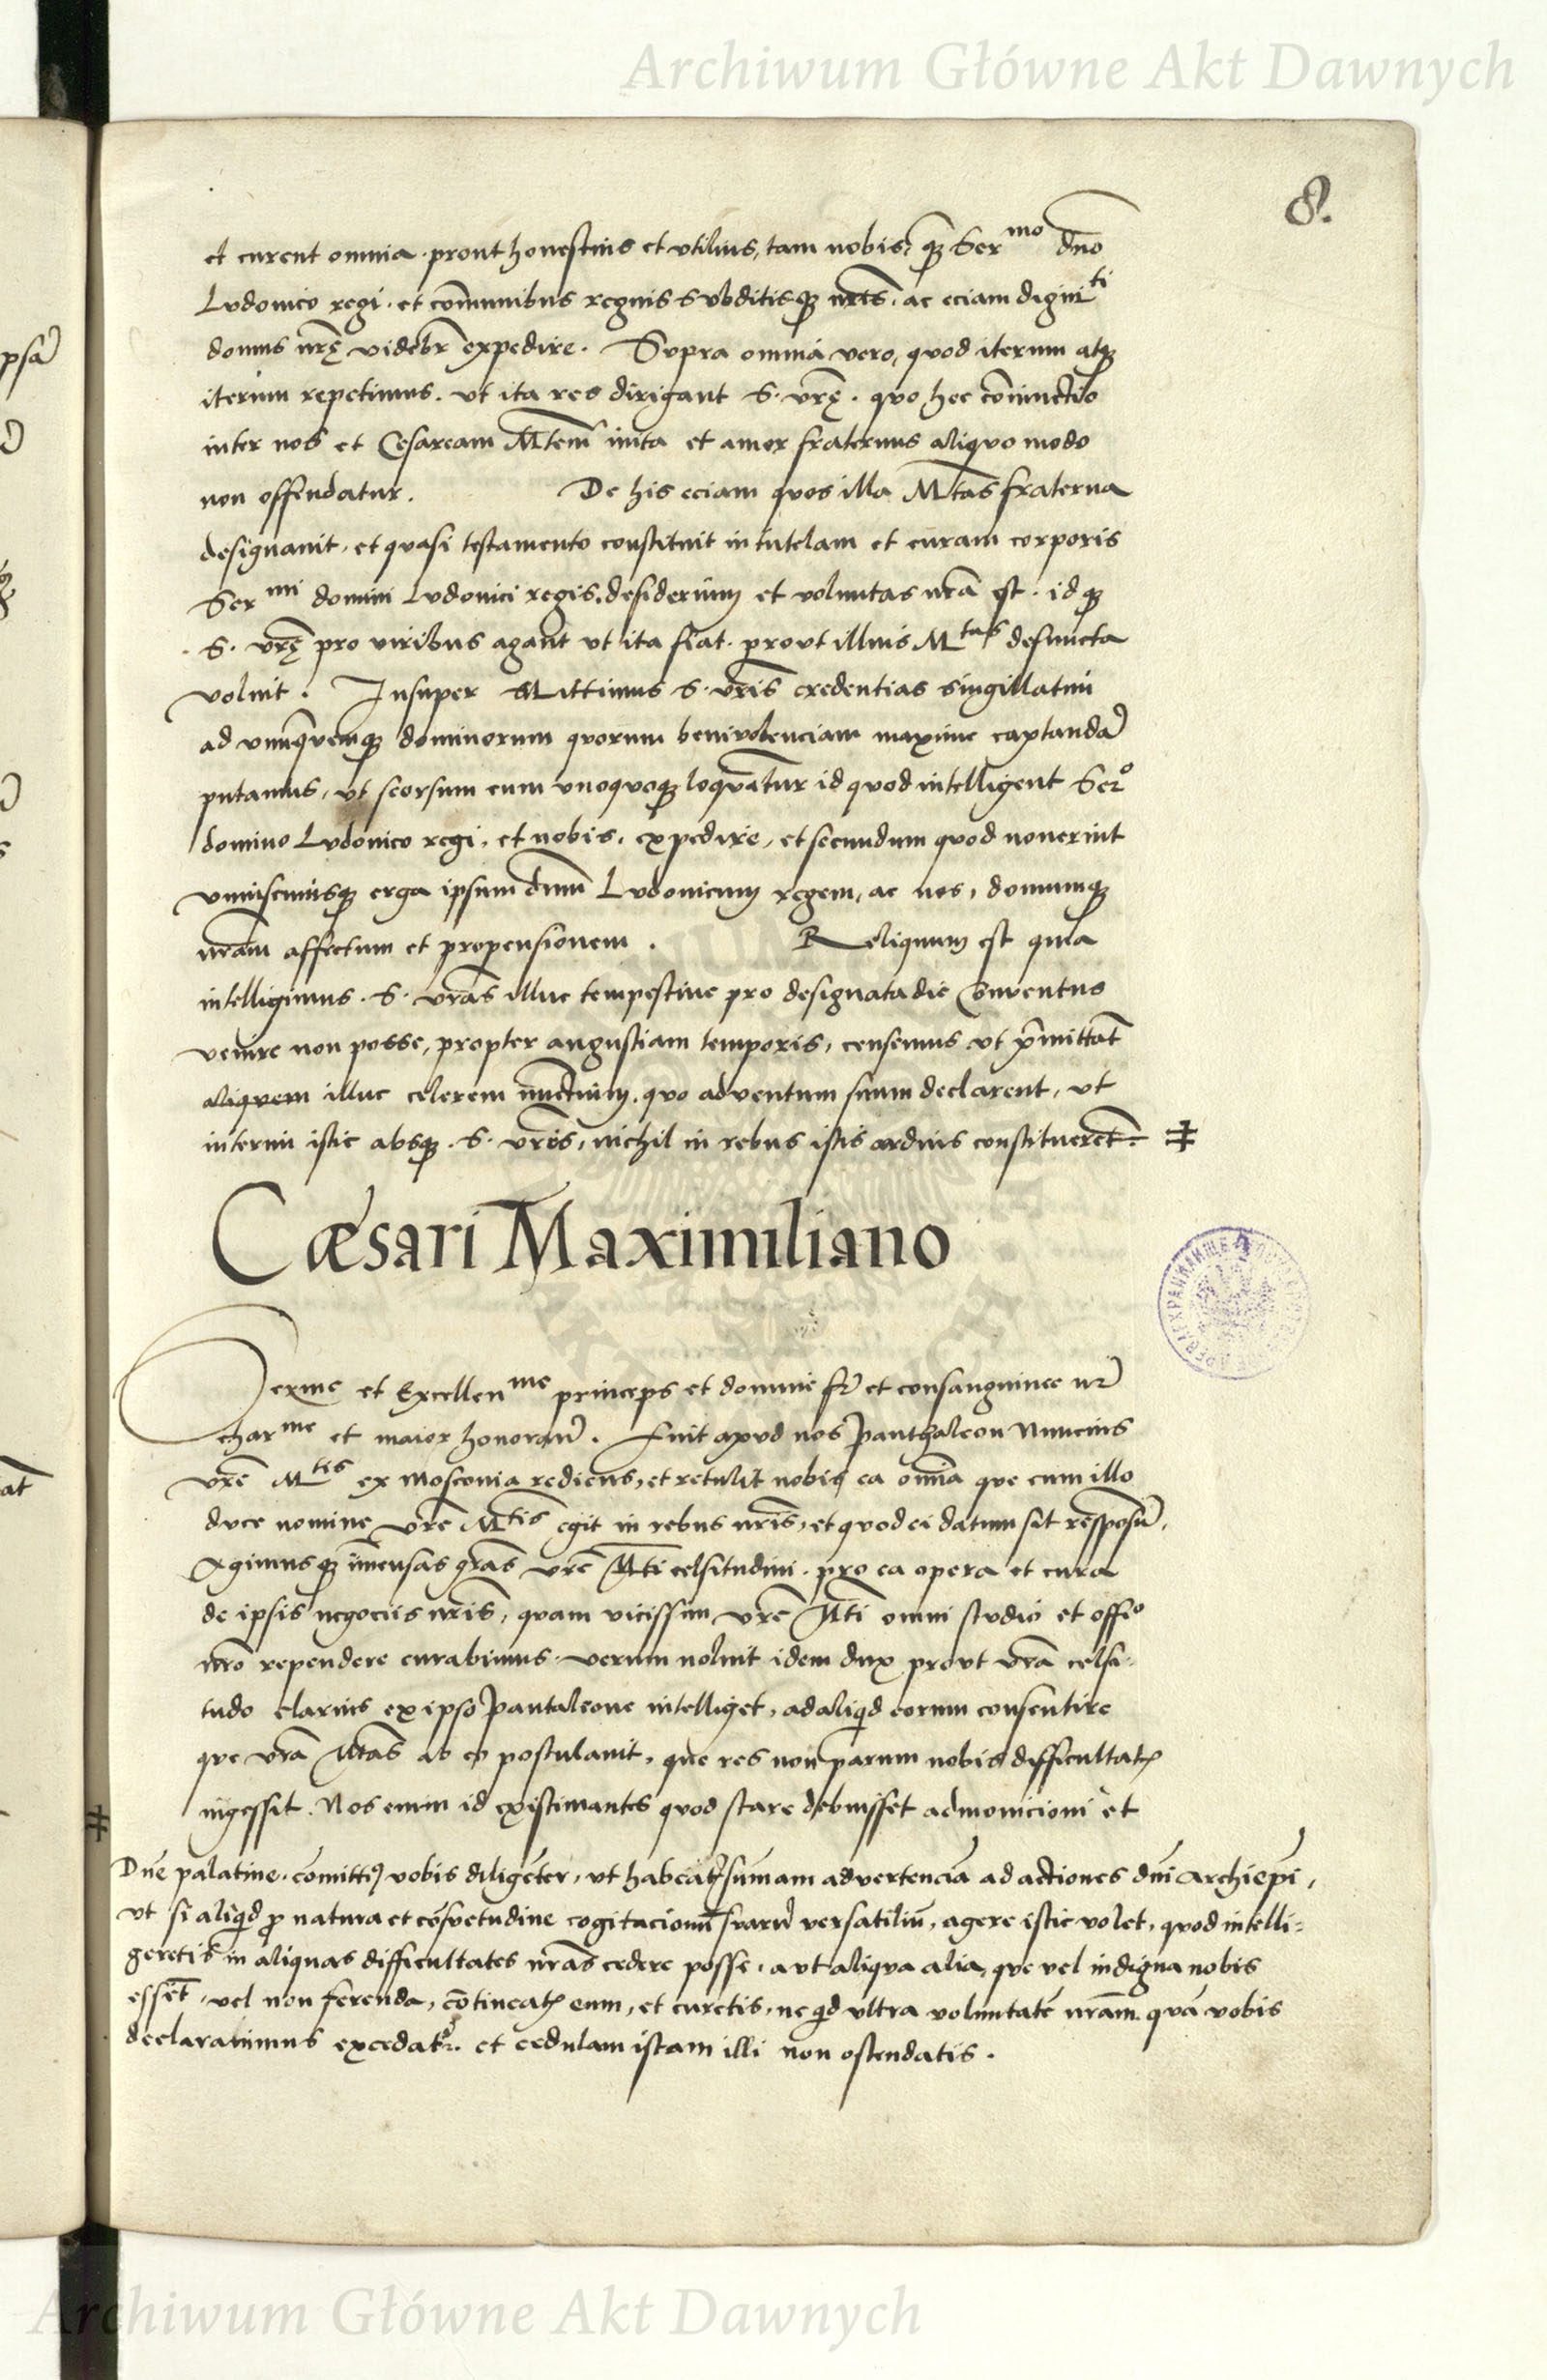 Archiwum Główne Akt Dawnych
8.
et curent omnia prout honestius et vtilius, tam nobis, q̃ȝ Ser mo dño
Lvdouico regi. et com̃unibus regnis Svbditisqȝ nr̃is. ac eciam digni ti
domus nr̃ę videbr̃ expedire. Svpra omnia vero, quod iterum atqȝ
iterum repetimus. vt ita res dirigant S. vr̃ę. quo hec cõiunctio
inter nos et Cesaream M̃tem inita et amor fraternus aliquo modo
non offendatur. De his eciam quos illa M̃tas fraterna
designauit, et quasi testamento constituit in tutelam et curam corporis
Ser mi domini Lvdouici regis, desiderium et voluntas nr̃a est. idqȝ
S. vr̃ę pro viribus agant vt ita fiat. prout illius M tas defuncta
voluit. Insuper Mittimus S. vr̃is credentias singillatim
ad vnũquemqȝ dominorum quorum beniuolenciam maxime captandã
putamus, vt seorsum cum vnoquoqȝ loquãtur id quod intelligent Ser o
domino Lvdouico regi, et nobis, expedire, et secundum quod nouerint
vniuscuiusqȝ erga ipsum dñm Lvdouicum regem, ac nos, domumqȝ
nr̃am affectum et propensionem. Reliquum est quia
intelligimus. S. vr̃as illuc tempestiue pro designata die Conuentus
venire non posse, propter angustiam temporis, censemus vt p̃mittãt
aliquem illuc celerem nunctium, quo adventum suum declarent, vt
interim istic absqȝ. S. vr̃is, nichil in rebus istis arduis constituerẽt. ‡
Cæsari Maximiliano
Serme et Excellen me princeps et domine fr̃ et consanguinee nr̃
char me et maior honoran̄. Fuit apud nos Panthaleon Nuncius
vr̃e M tis ex Moscouia rediens, et retulit nobis ea om̃ia que cum illo
duce nomine vr̃e M tis egit in rebus nr̃is, et quod ei datum sit respõsũ,
Agimusqȝ im̃ensas gr̃as vr̃e M̃ti celsitudini. pro ea opera et cura
de ipsis negociis nr̃is, quam vicissim vr̃e M̃ti omni studio et offi o
nr̃o rependere curabimus. verum noluit idem dux prout vr̃a celsi-
tudo clarius ex ipso Pantaleone intelliget, ad aliqd̃ eorum consentire
que vr̃a M̃tas ab eo postulauit, que res non parum nobis difficultatꝭ
ingessit. Nos enim id existimantes quod stare debuisset admonicioni et
‡
Dñe palatine. com̃ittimꝰ vobis diligẽter, vt habeatꝭ sum̃am advertenciã ad actiones dñi Archiepĩ,
vt si aliqd̃ ꝓ natura et cõsuetudine cogitacionũ suarũ versatiliũ, agere istic volet, quod intelli=
geretis in aliquas difficultates nr̃as cedere posse, aut aliqua alia, que vel indigna nobis
essẽt, vel non ferenda, cõtineatꝭ eum, et curetis, ne qd̃ vltra voluntatẽ nr̃am. quã vobis
declarauimus excedatr̃. et cedulam istam illi non ostendatis.
Archiwum Główne Akt Dawnych